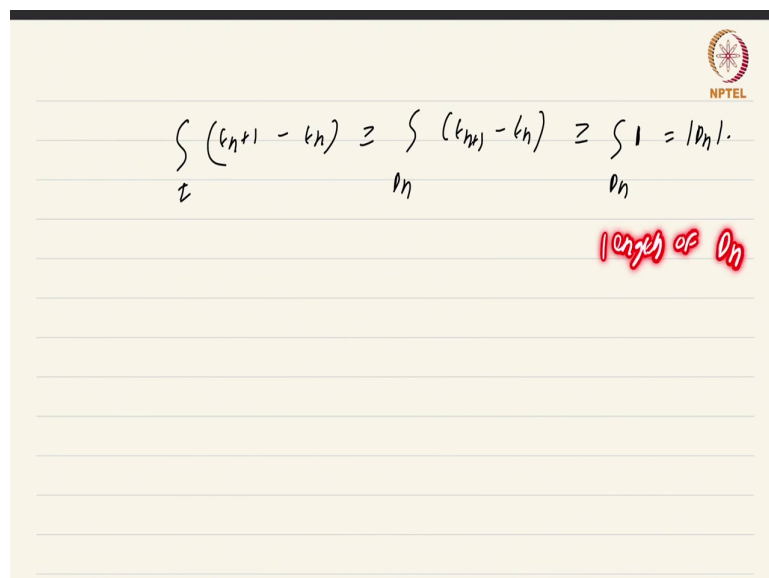 NPTEL
∫_I (t_{n+1} - t_n) ≥ ∫_{D_n} (t_{n+1} - t_n) ≥ ∫_{D_n} 1 = |D_n|.
length of D_n